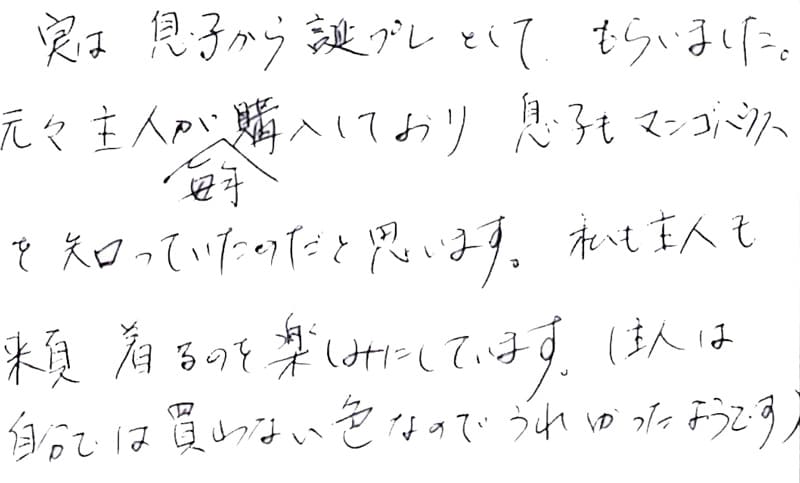 実は 息子から誕プレとして もらいました。
元々主人が購入しており 息子もマンゴハウス
毎年
を知っていたのだと思います。 私も主人も
来夏 着るのを楽しみにしています。(主人は
自分では買わない色なのでうれかったようです)